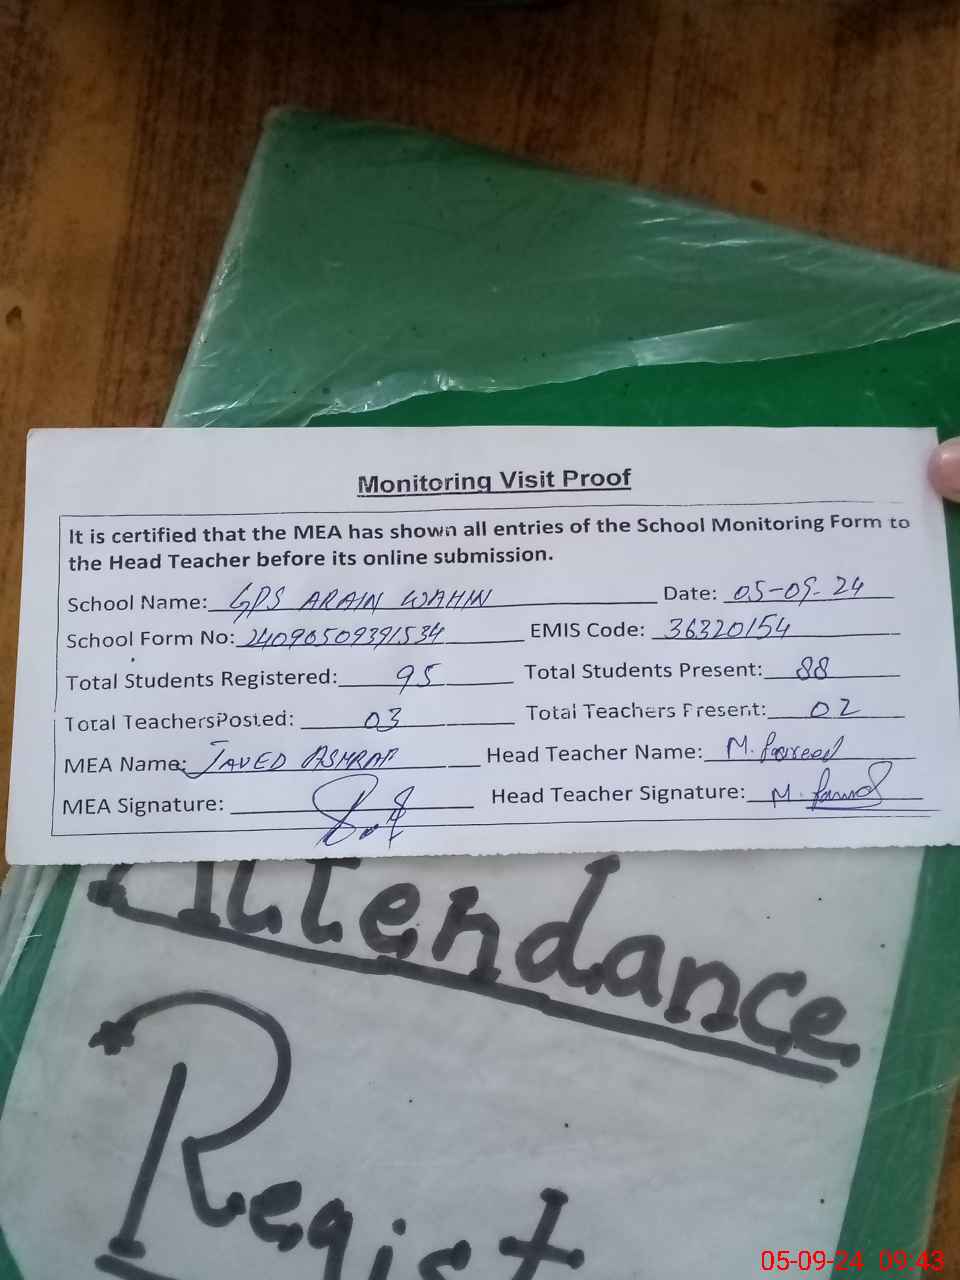 Monitoring Visit Proof
It is certified that the MEA has shown all entries of the School Monitoring Form to
the Head Teacher before its online submission.
School Name: GPS ARAIN WAHIN Date: 05-09-24
School Form No: 24090509391534 EMIS Code: 36320154
Total Students Registered: 95 Total Students Present: 88
Total TeachersPosted: 03 Total Teachers Present: 02
MEA Name: JAVED ASHRAF Head Teacher Name: M. Fareed
MEA Signature: Head Teacher Signature: M. Fareed
Attendance
Regist
05-09-24 09:43